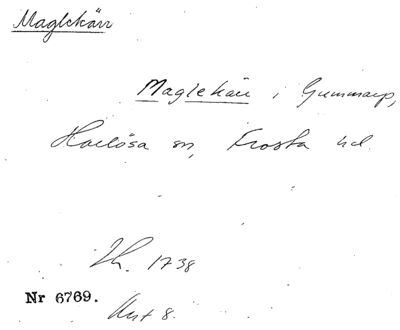 Maglekärr
Maglekärr i Gummarp,
Harlösa sn, Frosta hd.
Lh. 1738
Nr 6769.
Akt 8.